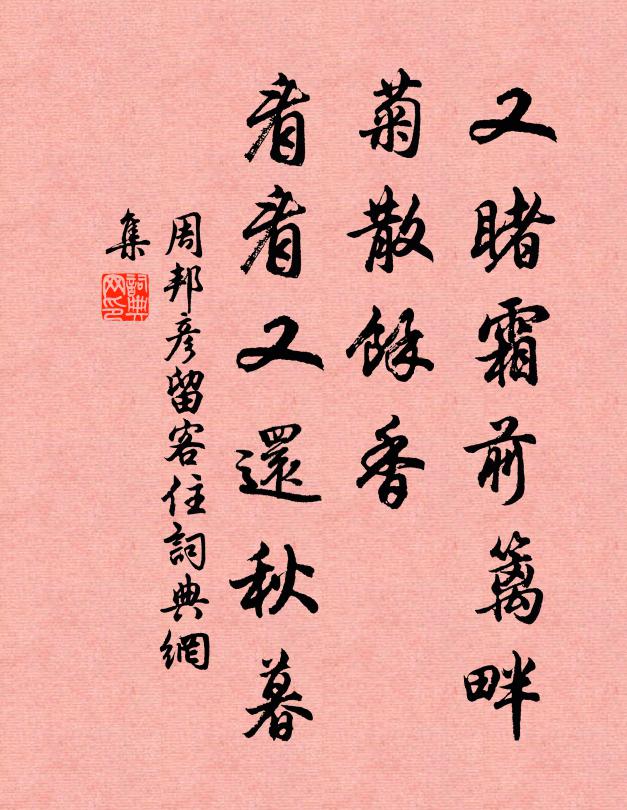 又睹霜前篱畔
菊散餘香
看看又還秋暮
周邦彦留客住詞典網
集
詞典网印